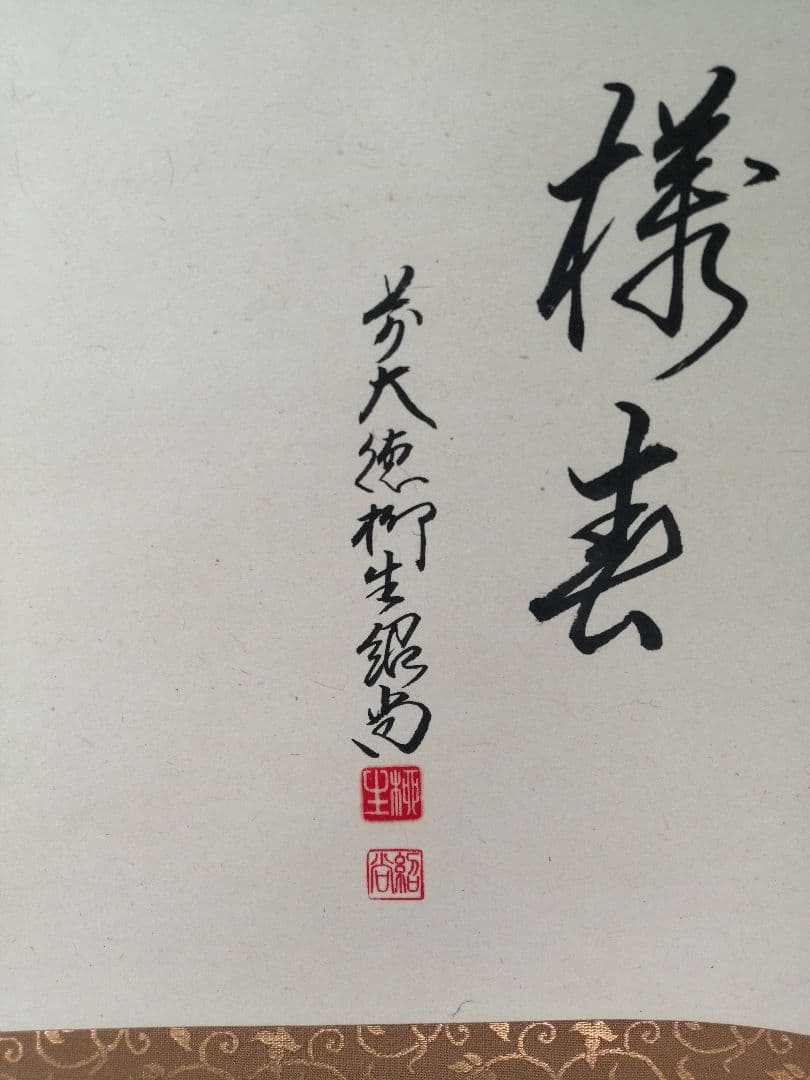 様春
前大徳柳生紹尚
柳生
紹尚